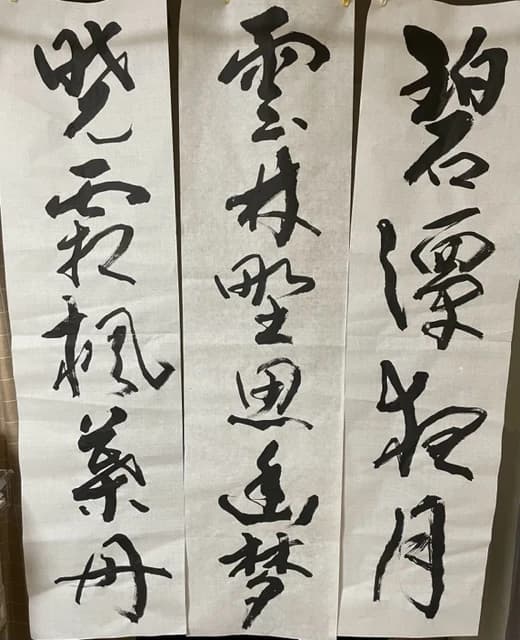 碧潭夜月
雲林野思幽梦
晓霜楓葉丹